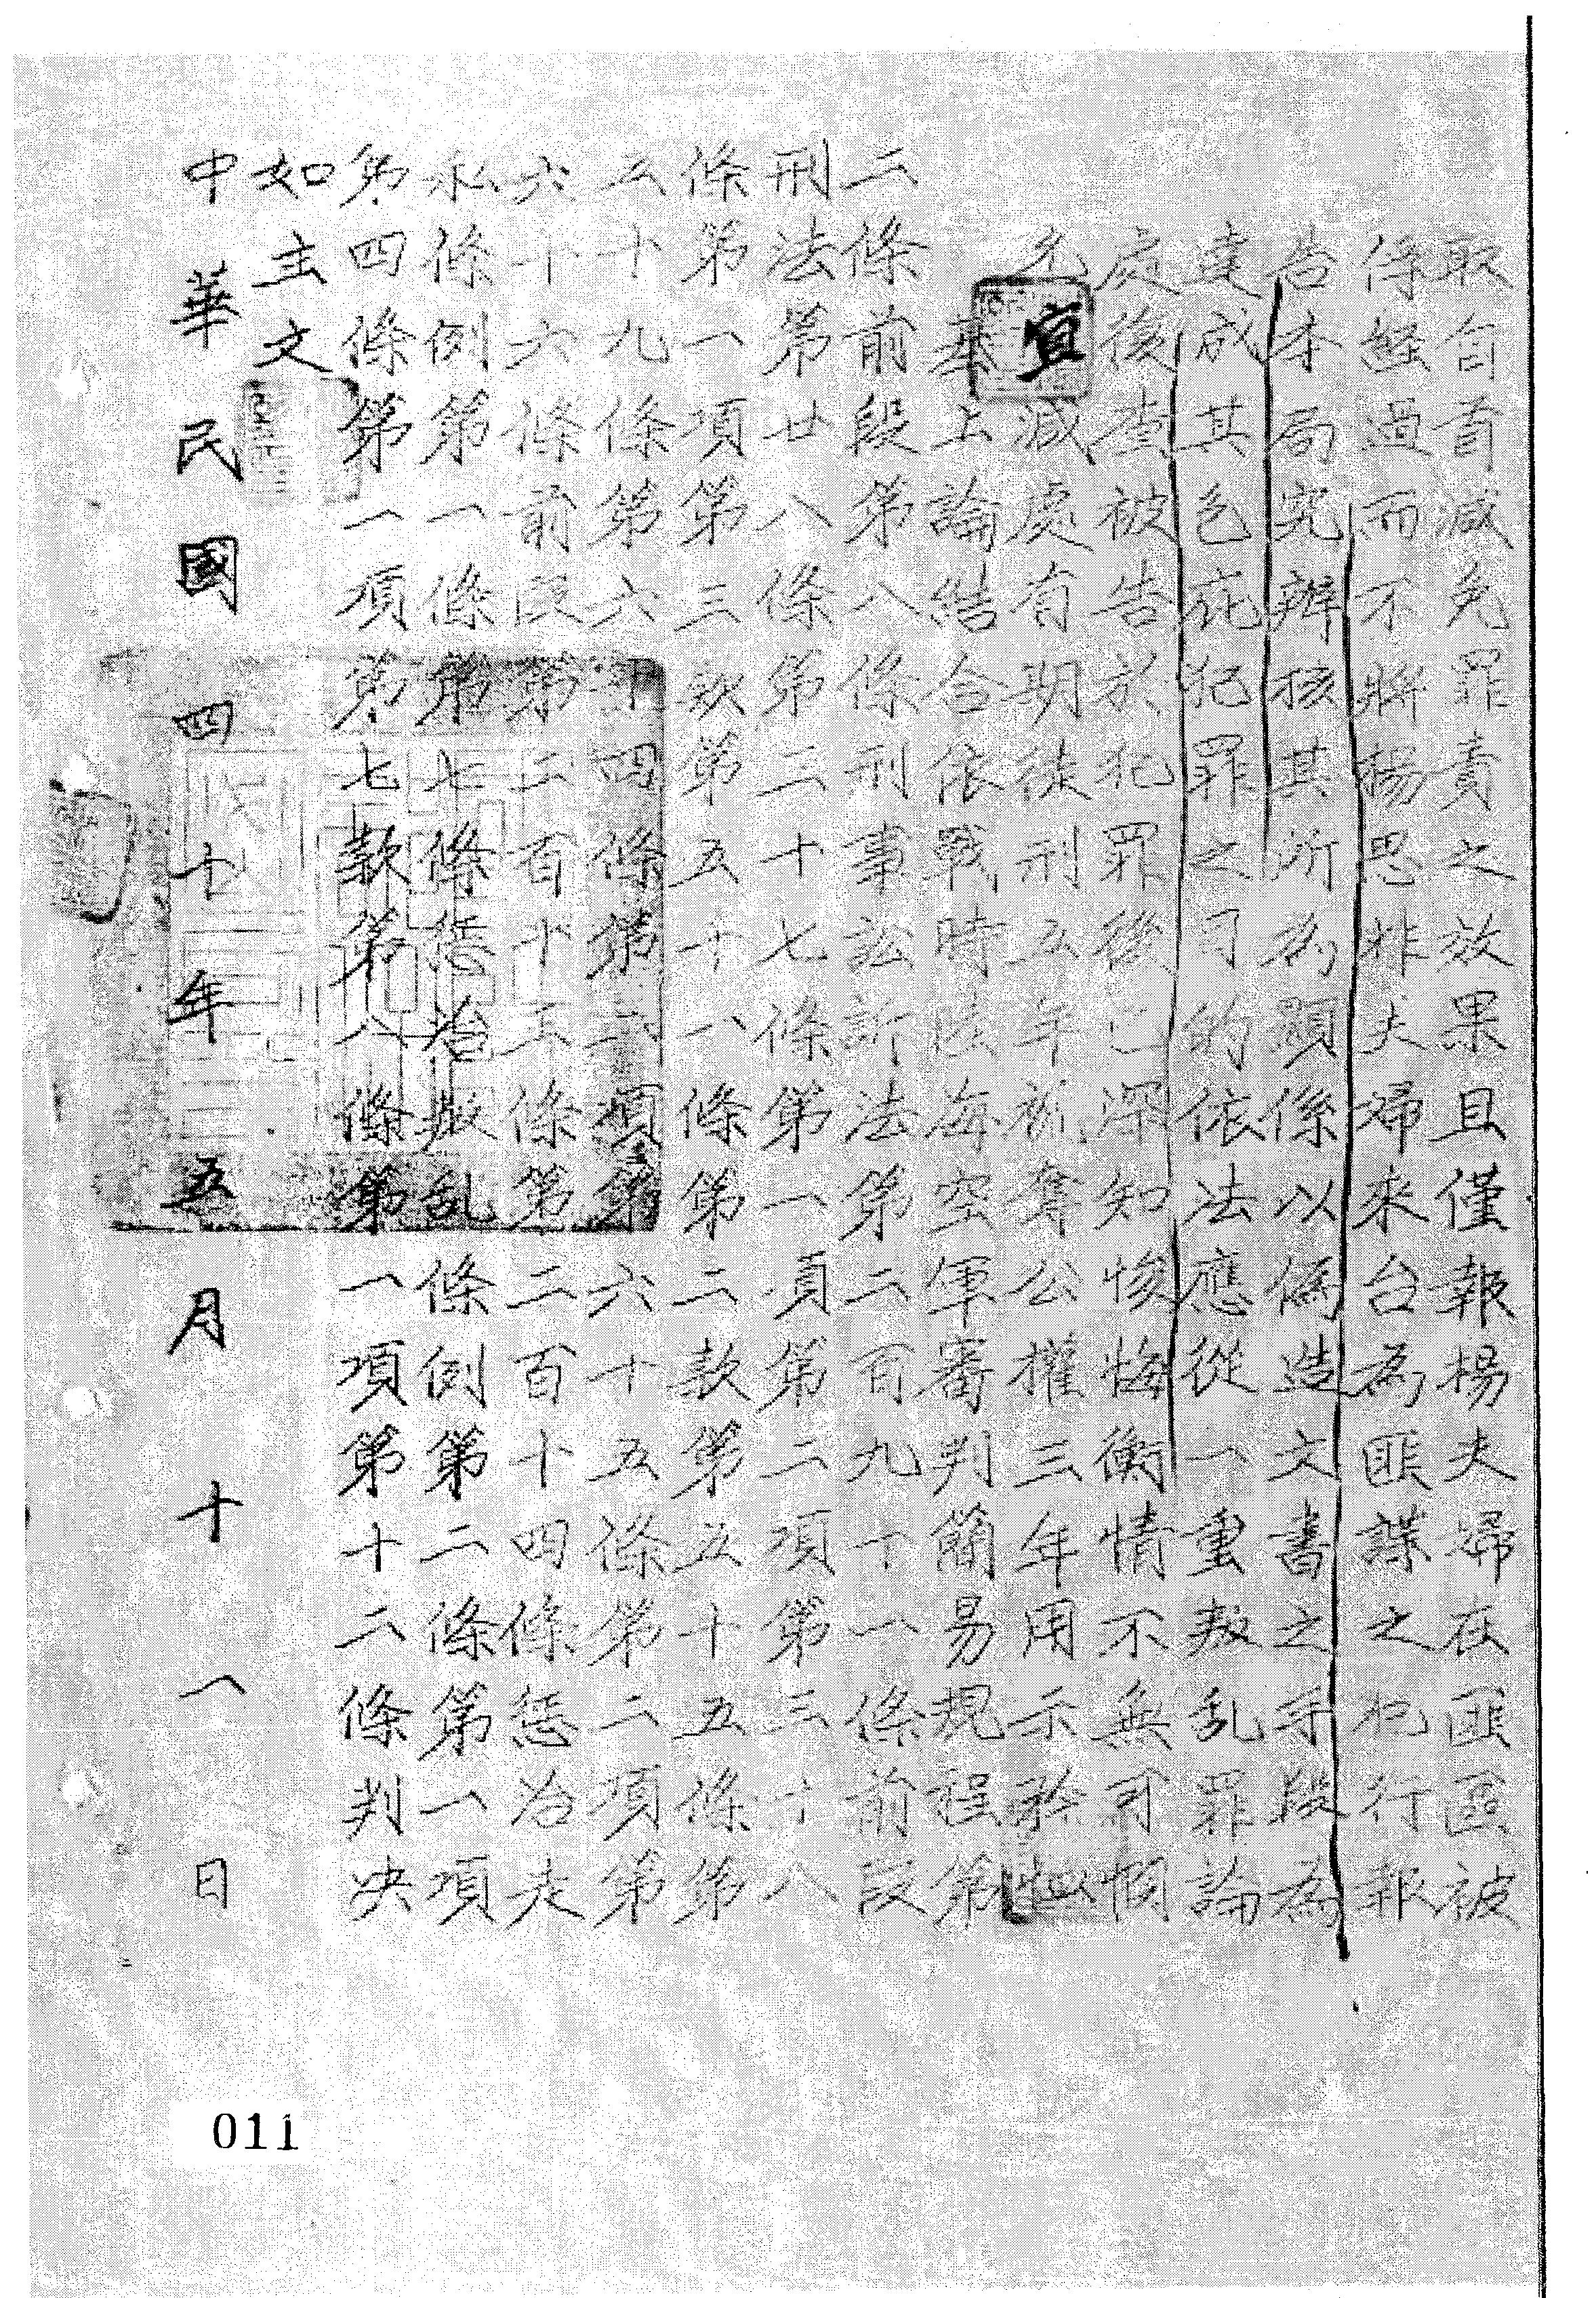 取自首減免罪責之效果且僅報楊夫婦在匪區被
俘經過而不將楊思非夫婦來台為匪諜之犯行報
告本局究辦核其所為顯係以偽造文書之手段為
達成其包庇犯罪之目的依法應從一重叛乱罪論
處後查被告於犯罪後已深知悛悔衡情不無可憫
宜減處有期徒刑五年褫奪公權三年用示矜恤
基上論結合依戰時陸海空軍審判簡易規程第
二條前段第八條刑事訴訟法第二百九十一條前段
刑法第廿八條第二十七條第一項第二項第三十八
條第一項第三款第五十八條第二款第五十五條第
五十九條第六十四條第二項第六十五條第二項第
六十六條前段第二百十五條第二百十四條懲治走
私條例第一條第七條懲治叛乱條例第二條第一項
第四條第一項第七款第八條第一項第十二條判決
如主文
中華民國四十年五月十八日
011